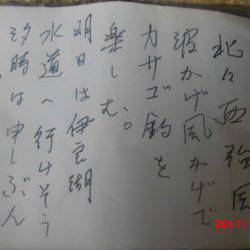 北々西強風
波かげ風かげで
カサゴ釣を
楽しむ。
明日は伊豆湖
水道へ行けそう
汐時は申しぶん
2017